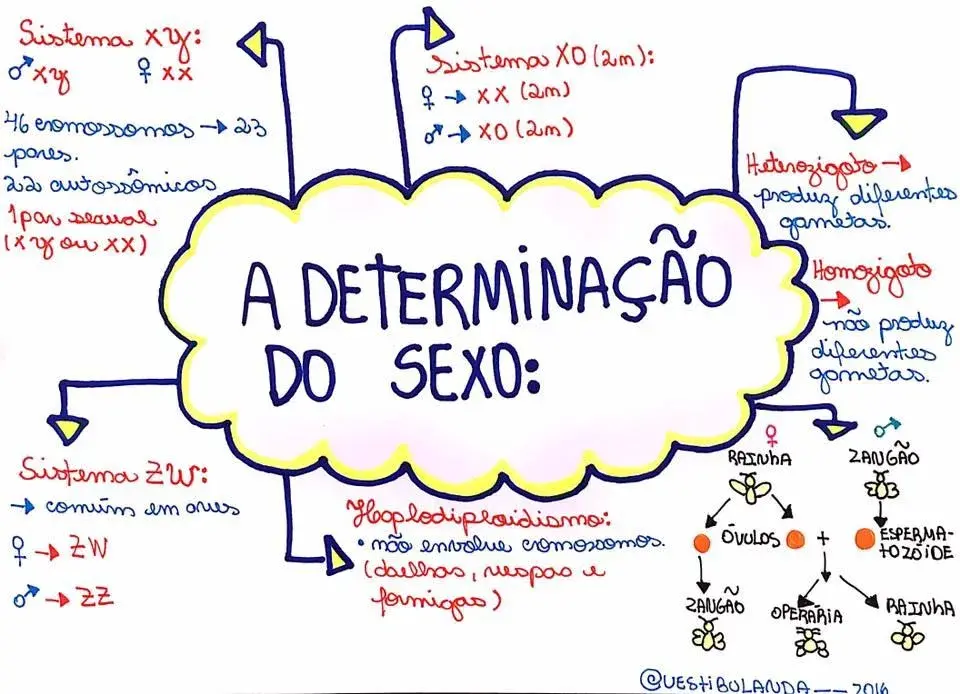 Sistema XY:
♂ XY ♀ XX
46 cromossomos → 23
pares.
22 autossômicos
1 par sexual
(XY ou XX)
Sistema XO (2n):
♀ → XX (2n)
♂ → XO (2n)
Heterozigoto →
produz diferentes
gametas.
Homozigoto
→
não produz
diferentes
gametas.
A DETERMINAÇÃO
DO SEXO:
Sistema ZW:
→ comúns em aves
♀ → ZW
♂ → ZZ
Haplodiploidismo:
• não envolve cromossomos.
(abelhas, vespas e
formigas)
♀ ♂
RAINHA ZANGÃO
ÓVULOS + ESPERMA-
TOZÓIDE
ZANGÃO OPERÁRIA RAINHA
@VESTIBULANDA –– 2016